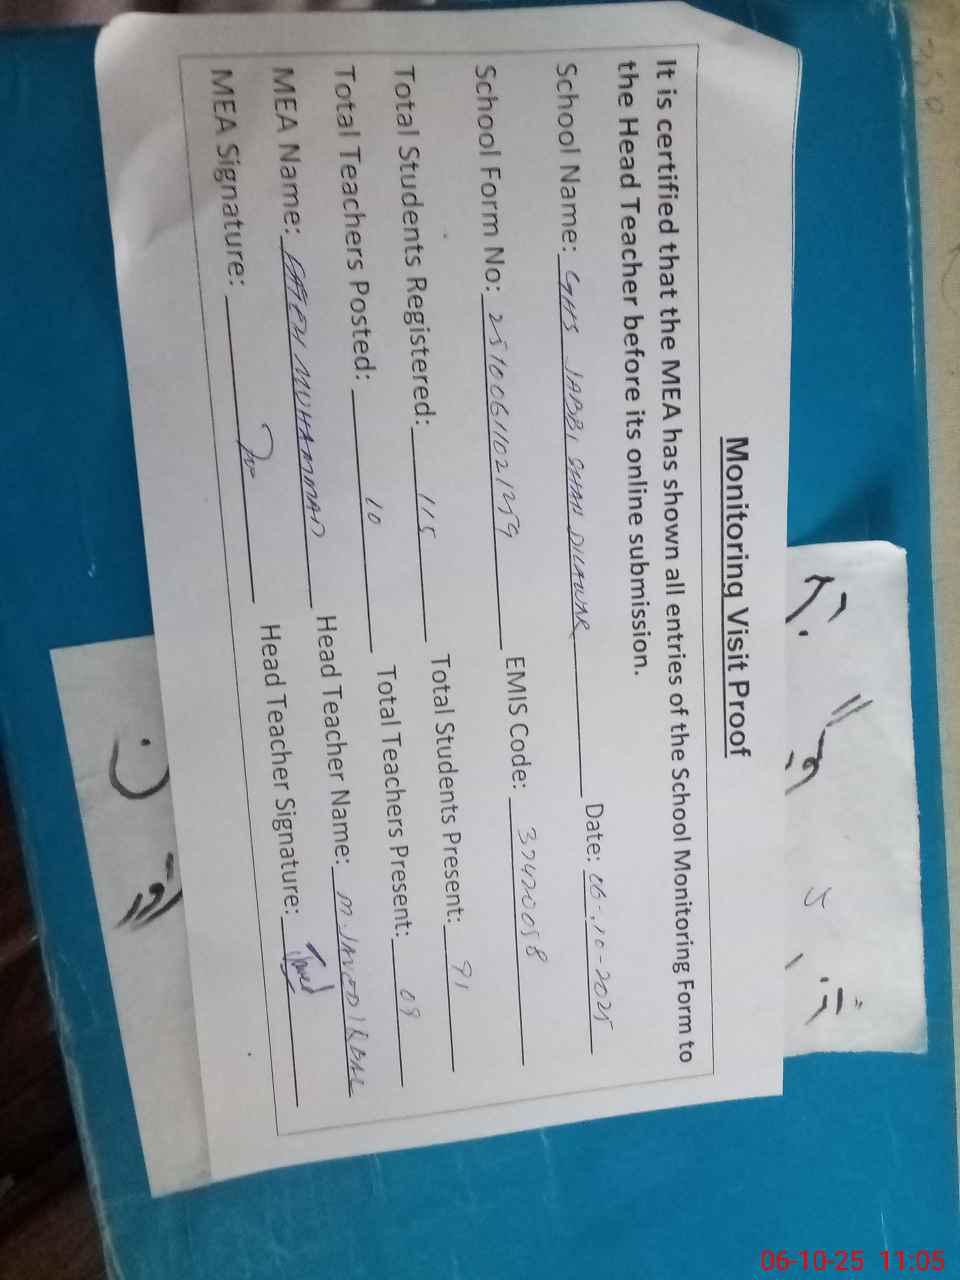 Monitoring Visit Proof
It is certified that the MEA has shown all entries of the School Monitoring Form to
the Head Teacher before its online submission.
School Name: GHS JABBI SHAH DILAWAR Date: 06-10-2025
School Form No: EMIS Code: 37420058
Total Students Registered: 115 Total Students Present: 91
Total Teachers Posted: 10 Total Teachers Present: 09
MEA Name: FATEH MUHAMMAD Head Teacher Name: M. JAVED IQBAL
MEA Signature: Head Teacher Signature: Javed
06-10-25 11:05